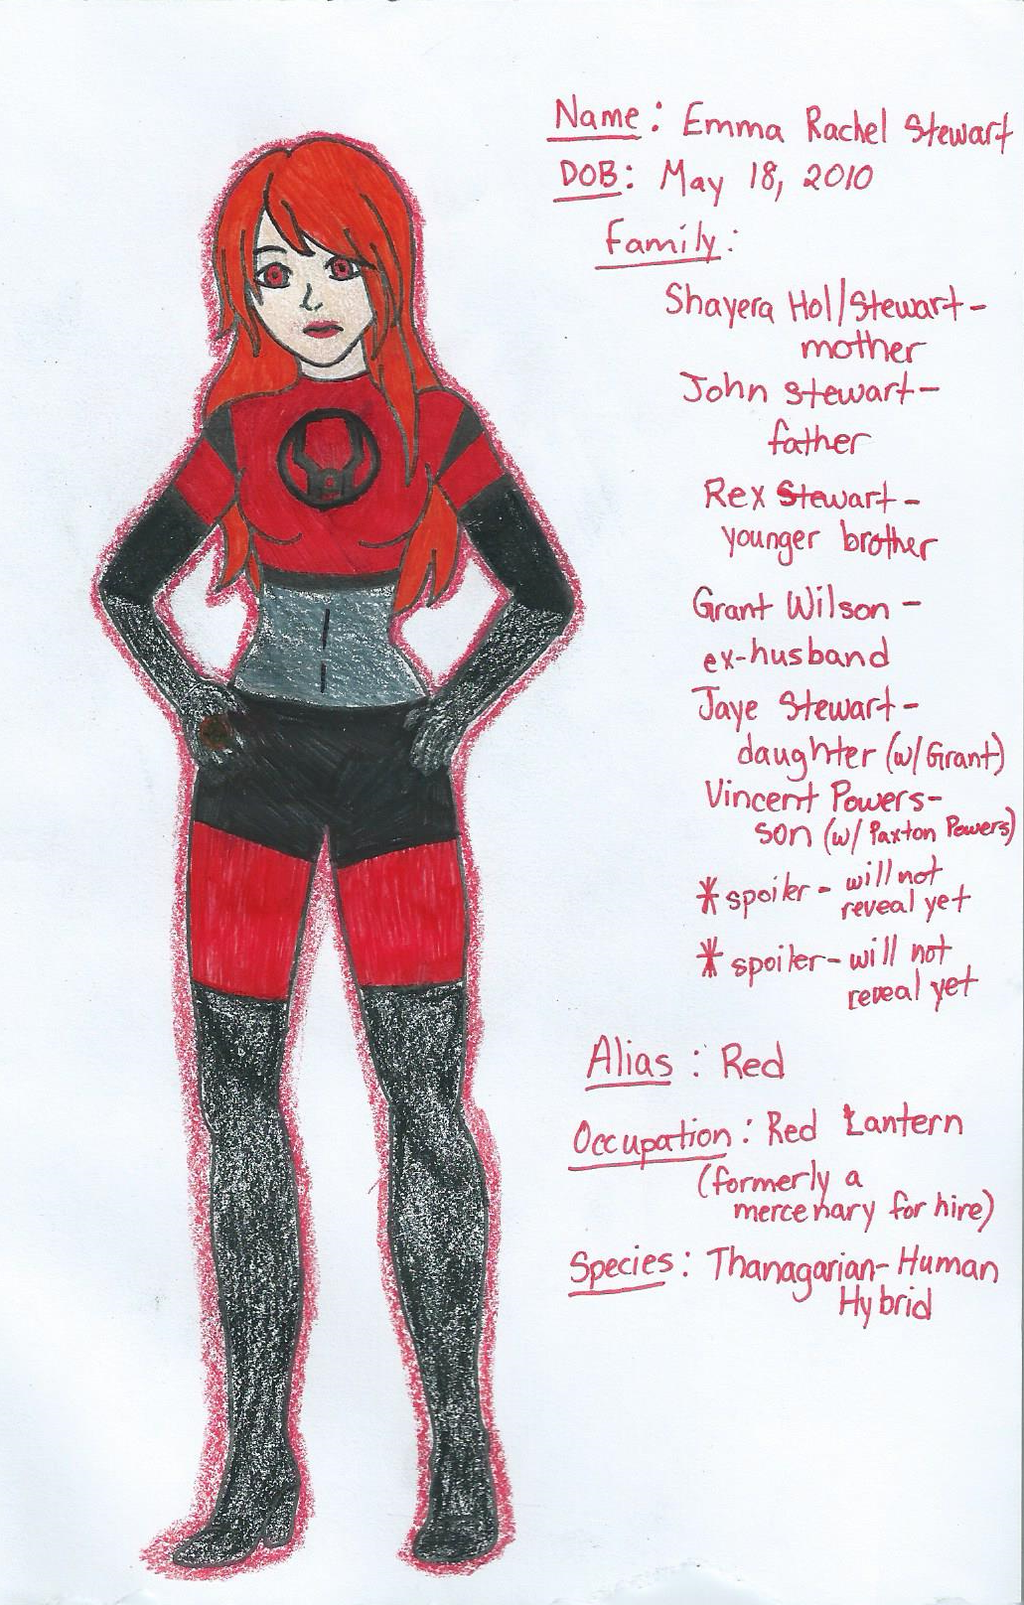 Name: Emma Rachel Stewart
DOB: May 18, 2010
Family:
Shayera Hol/Stewart-
mother
John Stewart-
father
Rex Stewart-
younger brother
Grant Wilson-
ex-husband
Jaye Stewart-
daughter (w/Grant)
Vincent Powers-
son (w/ Paxton Powers)
*spoiler- will not
reveal yet
*spoiler- will not
reveal yet
Alias: Red
Occupation: Red Lantern
(formerly a
mercenary for hire)
Species: Thanagarian-Human
Hybrid